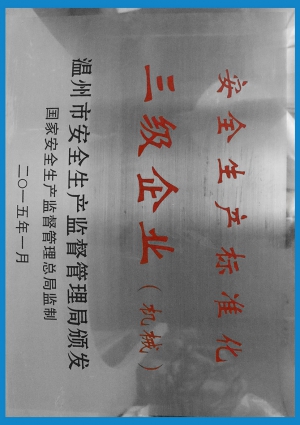 安全生产标准化
三级企业（机械）
温州市安全生产监督管理局颁发
国家安全生产监督管理总局监制
二〇一五年一月